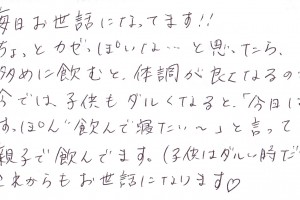 毎日お世話になってます!!
ちょっとカゼっぽいな…と思ったら、
多めに飲むと、体調が良くなるの
今では、子供もダルくなると、「今日は
すっぽん〝飲んで寝たい〜」と言って
親子で飲んでます。(子供はダルい時だ
これからもお世話になります♡